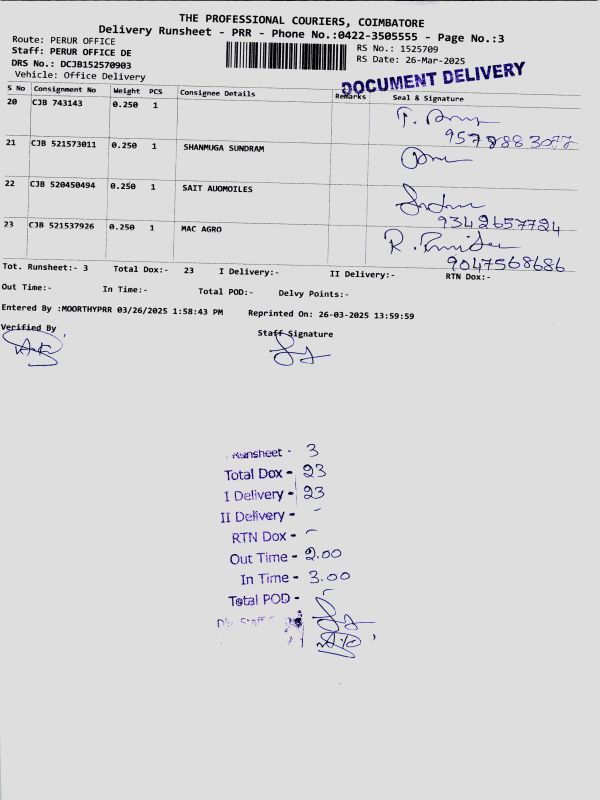 THE PROFESSIONAL COURIERS, COIMBATORE
Delivery Runsheet - PRR - Phone No.:0422-3505555 - Page No.:3
Route: PERUR OFFICE
RS No.: 1525709
Staff: PERUR OFFICE DE
RS Date: 26-Mar-2025
DRS No.: DCJB152570903
Vehicle: Office Delivery
DOCUMENT DELIVERY
S No Consignment No Weight PCS Consignee Details Remarks Seal & Signature
20 CJB 743143 0.250 1
9578883077
21 CJB 521573011 0.250 1 SHANMUGA SUNDRAM
22 CJB 520450494 0.250 1 SAIT AUOMOILES
9342657724
23 CJB 521537926 0.250 1 MAC AGRO
9047568686
Tot. Runsheet:- 3 Total Dox:- 23 I Delivery:- II Delivery:- RTN Dox:-
Out Time:- In Time:- Total POD:- Delvy Points:-
Entered By :MOORTHYPRR 03/26/2025 1:58:43 PM Reprinted On: 26-03-2025 13:59:59
Verified By Staff Signature
Runsheet - 3
Total Dox - 23
I Delivery - 23
II Delivery - -
RTN Dox - -
Out Time - 2.00
In Time - 3.00
Total POD - -
Staff